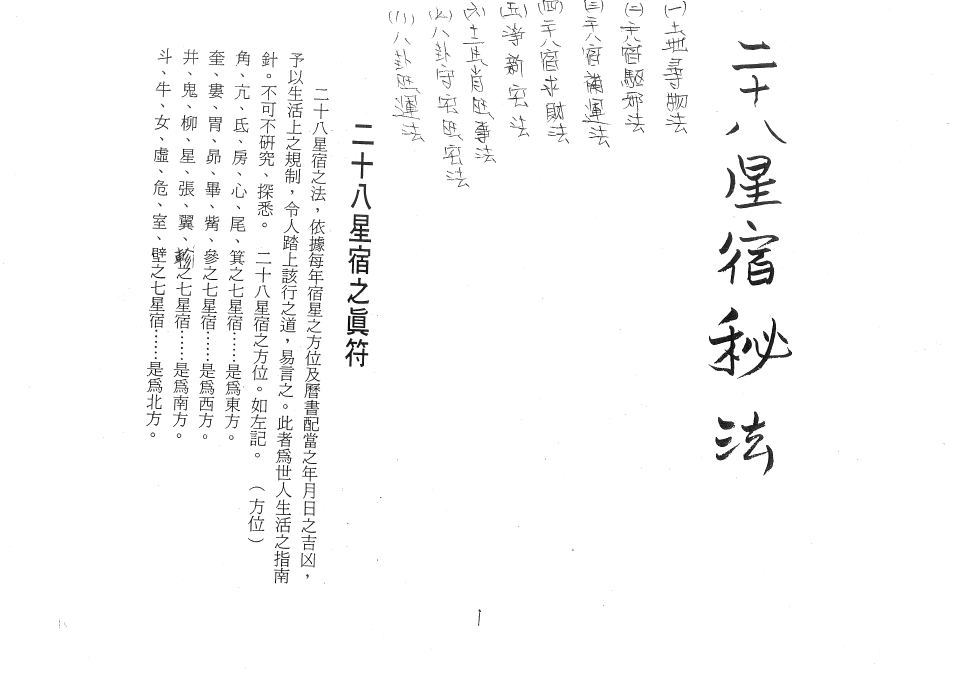 二十八星宿秘法
(一)土地尋物法
(二)二十八宿驅邪法
(三)二十八宿補運法
(四)二十八宿求財法
(五)淨新宅法
(六)十二生肖旺事法
(七)八卦守宅旺宅法
(八)八卦旺運法
二十八星宿之眞符
二十八星宿之法，依據每年宿星之方位及曆書配當之年月日之吉凶，
予以生活上之規制，令人踏上該行之道，易言之。此者爲世人生活之指南
針。不可不研究、探悉。　二十八星宿之方位。如左記。　（方位）
角、亢、氐、房、心、尾、箕之七星宿……是爲東方。
奎、婁、胃、昴、畢、觜、參之七星宿……是爲西方。
井、鬼、柳、星、張、翼、軫之七星宿……是爲南方。
斗、牛、女、虛、危、室、壁之七星宿……是爲北方。
1